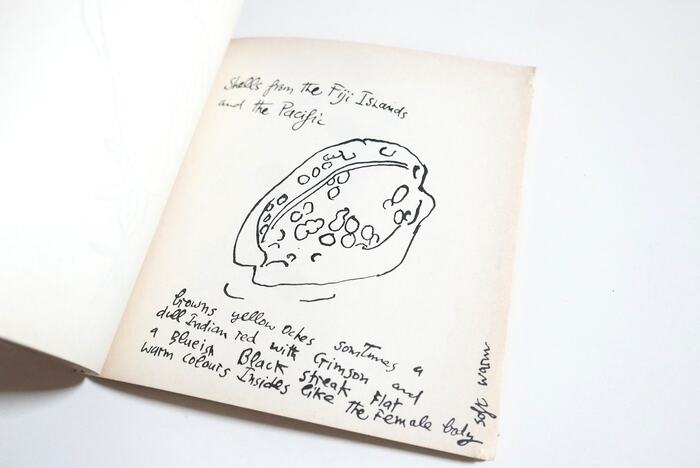 Shells from the Fiji Islands
and the Pacific
browns yellow Oches somtimes a
dull Indian red with Crimson and
a Blueish Black streak Flat
warm colours Insides like The Female body
soft warm